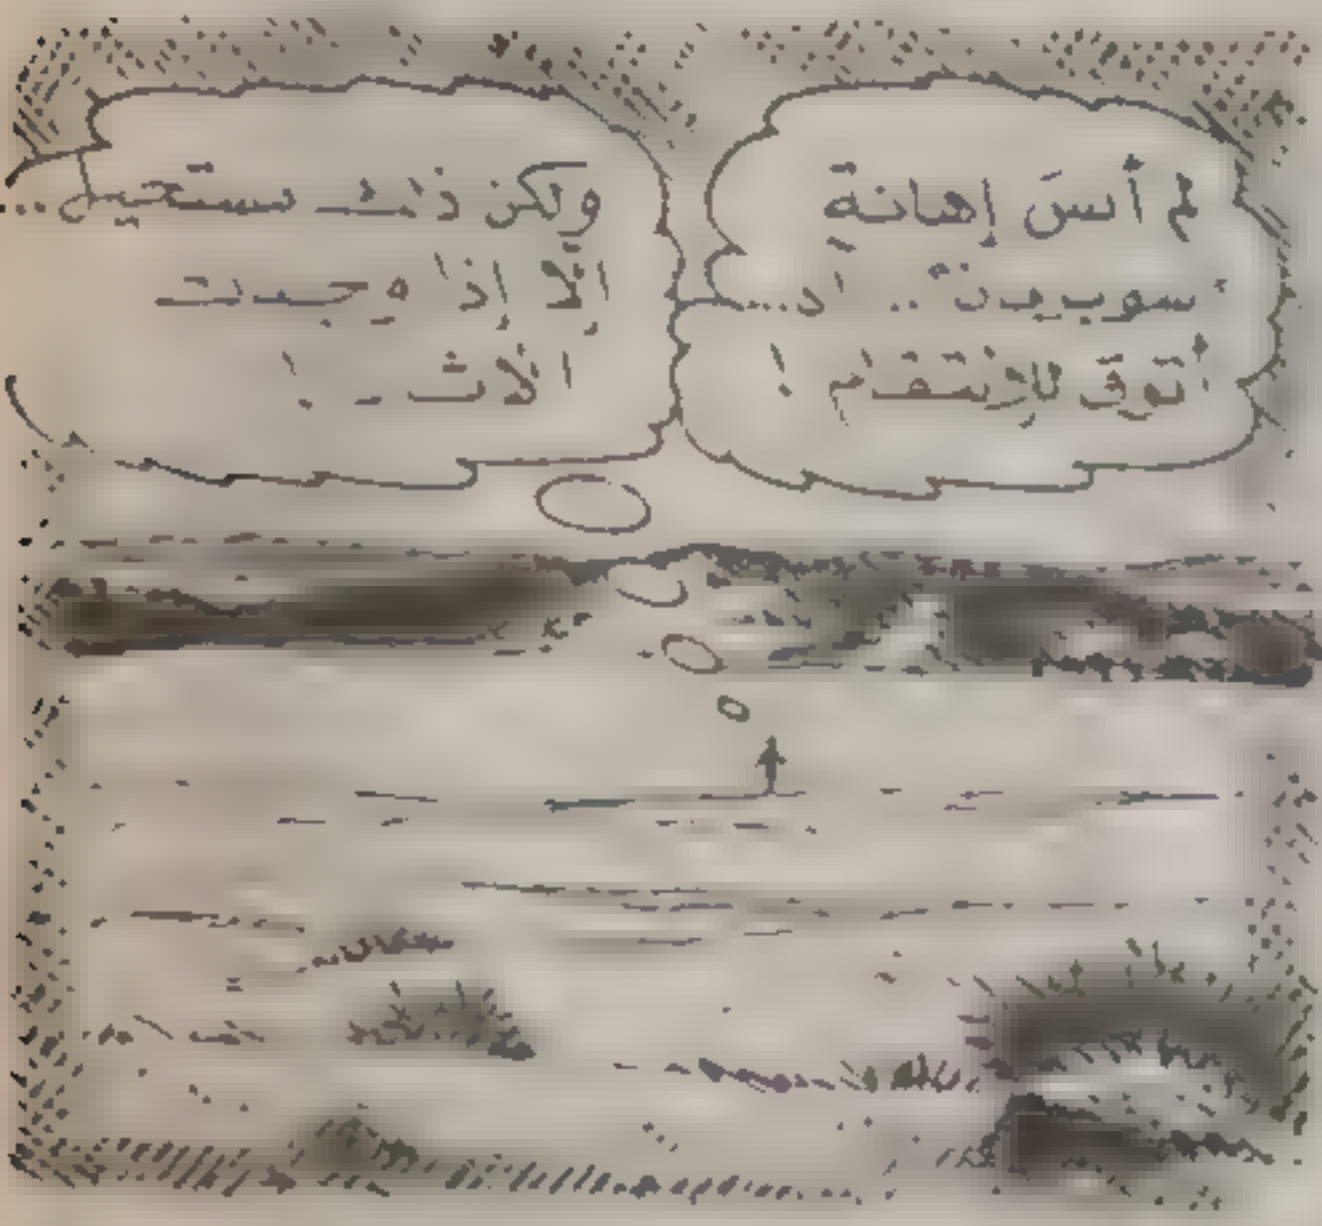 لم أنسَ إهانة
سوبرمان.. أ
توق للإنتقام !
ولكن ذلك يستحيل
الّا إذا وجدت
الاثـ ـ !